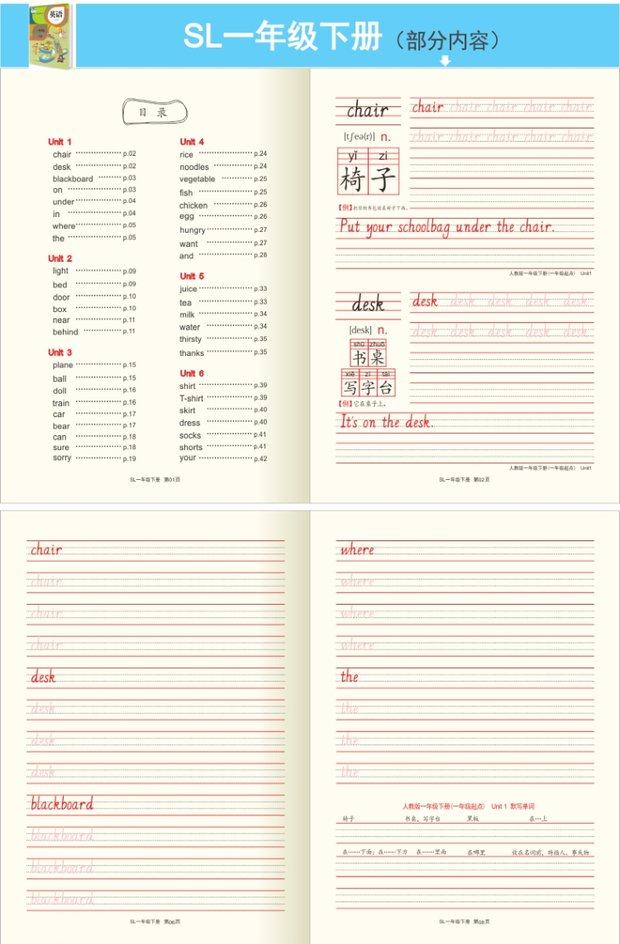 英语
SL一年级下册（部分内容）
目 录
Unit 1
chair p.02
desk p.02
blackboard p.03
on p.03
under p.04
in p.04
where p.05
the p.05
Unit 2
light p.09
bed p.09
door p.10
box p.10
near p.11
behind p.11
Unit 3
plane p.15
ball p.15
doll p.16
train p.16
car p.17
bear p.17
can p.18
sure p.18
sorry p.19
Unit 4
rice p.24
noodles p.24
vegetable p.25
fish p.25
chicken p.26
egg p.26
hungry p.27
want p.27
and p.28
Unit 5
juice p.33
tea p.33
milk p.34
water p.34
thirsty p.35
thanks p.35
Unit 6
shirt p.39
T-shirt p.39
skirt p.40
dress p.40
socks p.41
shorts p.41
your p.42
SL一年级下册 第01页
chair chair chair chair chair chair
[tʃeə(r)] n. chair chair chair chair chair
yǐ zi
椅子
【例】把你的书包放在椅子下面。
Put your schoolbag under the chair.
人教版一年级下册(一年级起点) Unit1
desk desk desk desk desk desk
[desk] n. desk desk desk desk desk
shū zhuō
书桌
xiě zì tái
写字台
【例】它在桌子上。
It's on the desk.
人教版一年级下册(一年级起点) Unit1
SL一年级下册 第02页
chair
chair
chair
chair
desk
desk
desk
desk
blackboard
blackboard
blackboard
blackboard
SL一年级下册 第06页
where
where
where
where
the
the
the
the
人教版一年级下册(一年级起点) Unit 1 默写单词
椅子 书桌，写字台 黑板 在…上
在……下面；在……下方 在……里面 在哪里 放在名词前，特指人、事或物
SL一年级下册 第08页